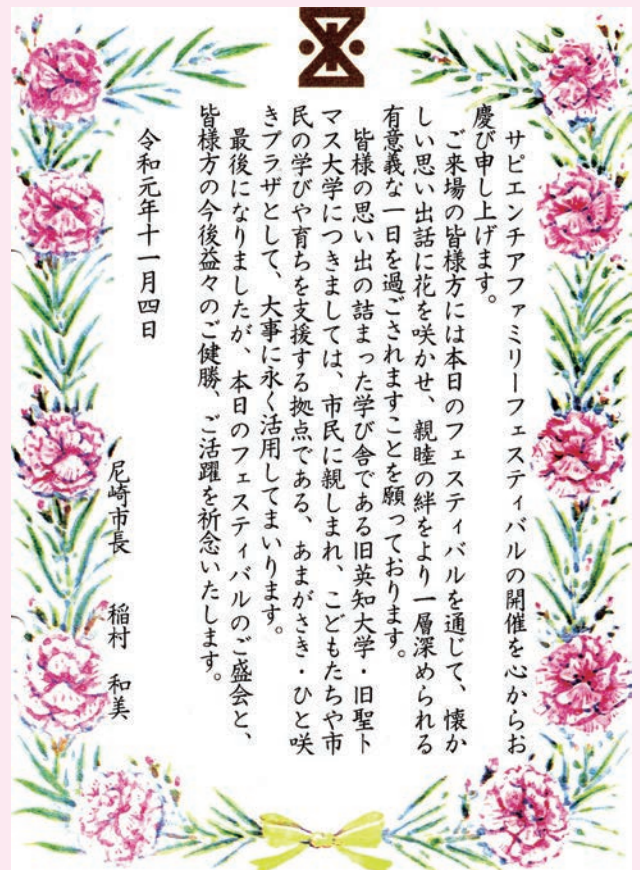 サピエンチアファミリーフェスティバルの開催を心からお
慶び申し上げます。
ご来場の皆様方には本日のフェスティバルを通じて、懐か
しい思い出話に花を咲かせ、親睦の絆をより一層深められる
有意義な一日を過ごされますことを願っております。
皆様の思い出の詰まった学び舎である旧英知大学・旧聖ト
マス大学につきましては、市民に親しまれ、こどもたちや市
民の学びや育ちを支援する拠点である、あまがさき・ひと咲
きプラザとして、大事に永く活用してまいります。
最後になりましたが、本日のフェスティバルのご盛会と、
皆様方の今後益々のご健勝、ご活躍を祈念いたします。
令和元年十一月四日
尼崎市長 稲村 和美